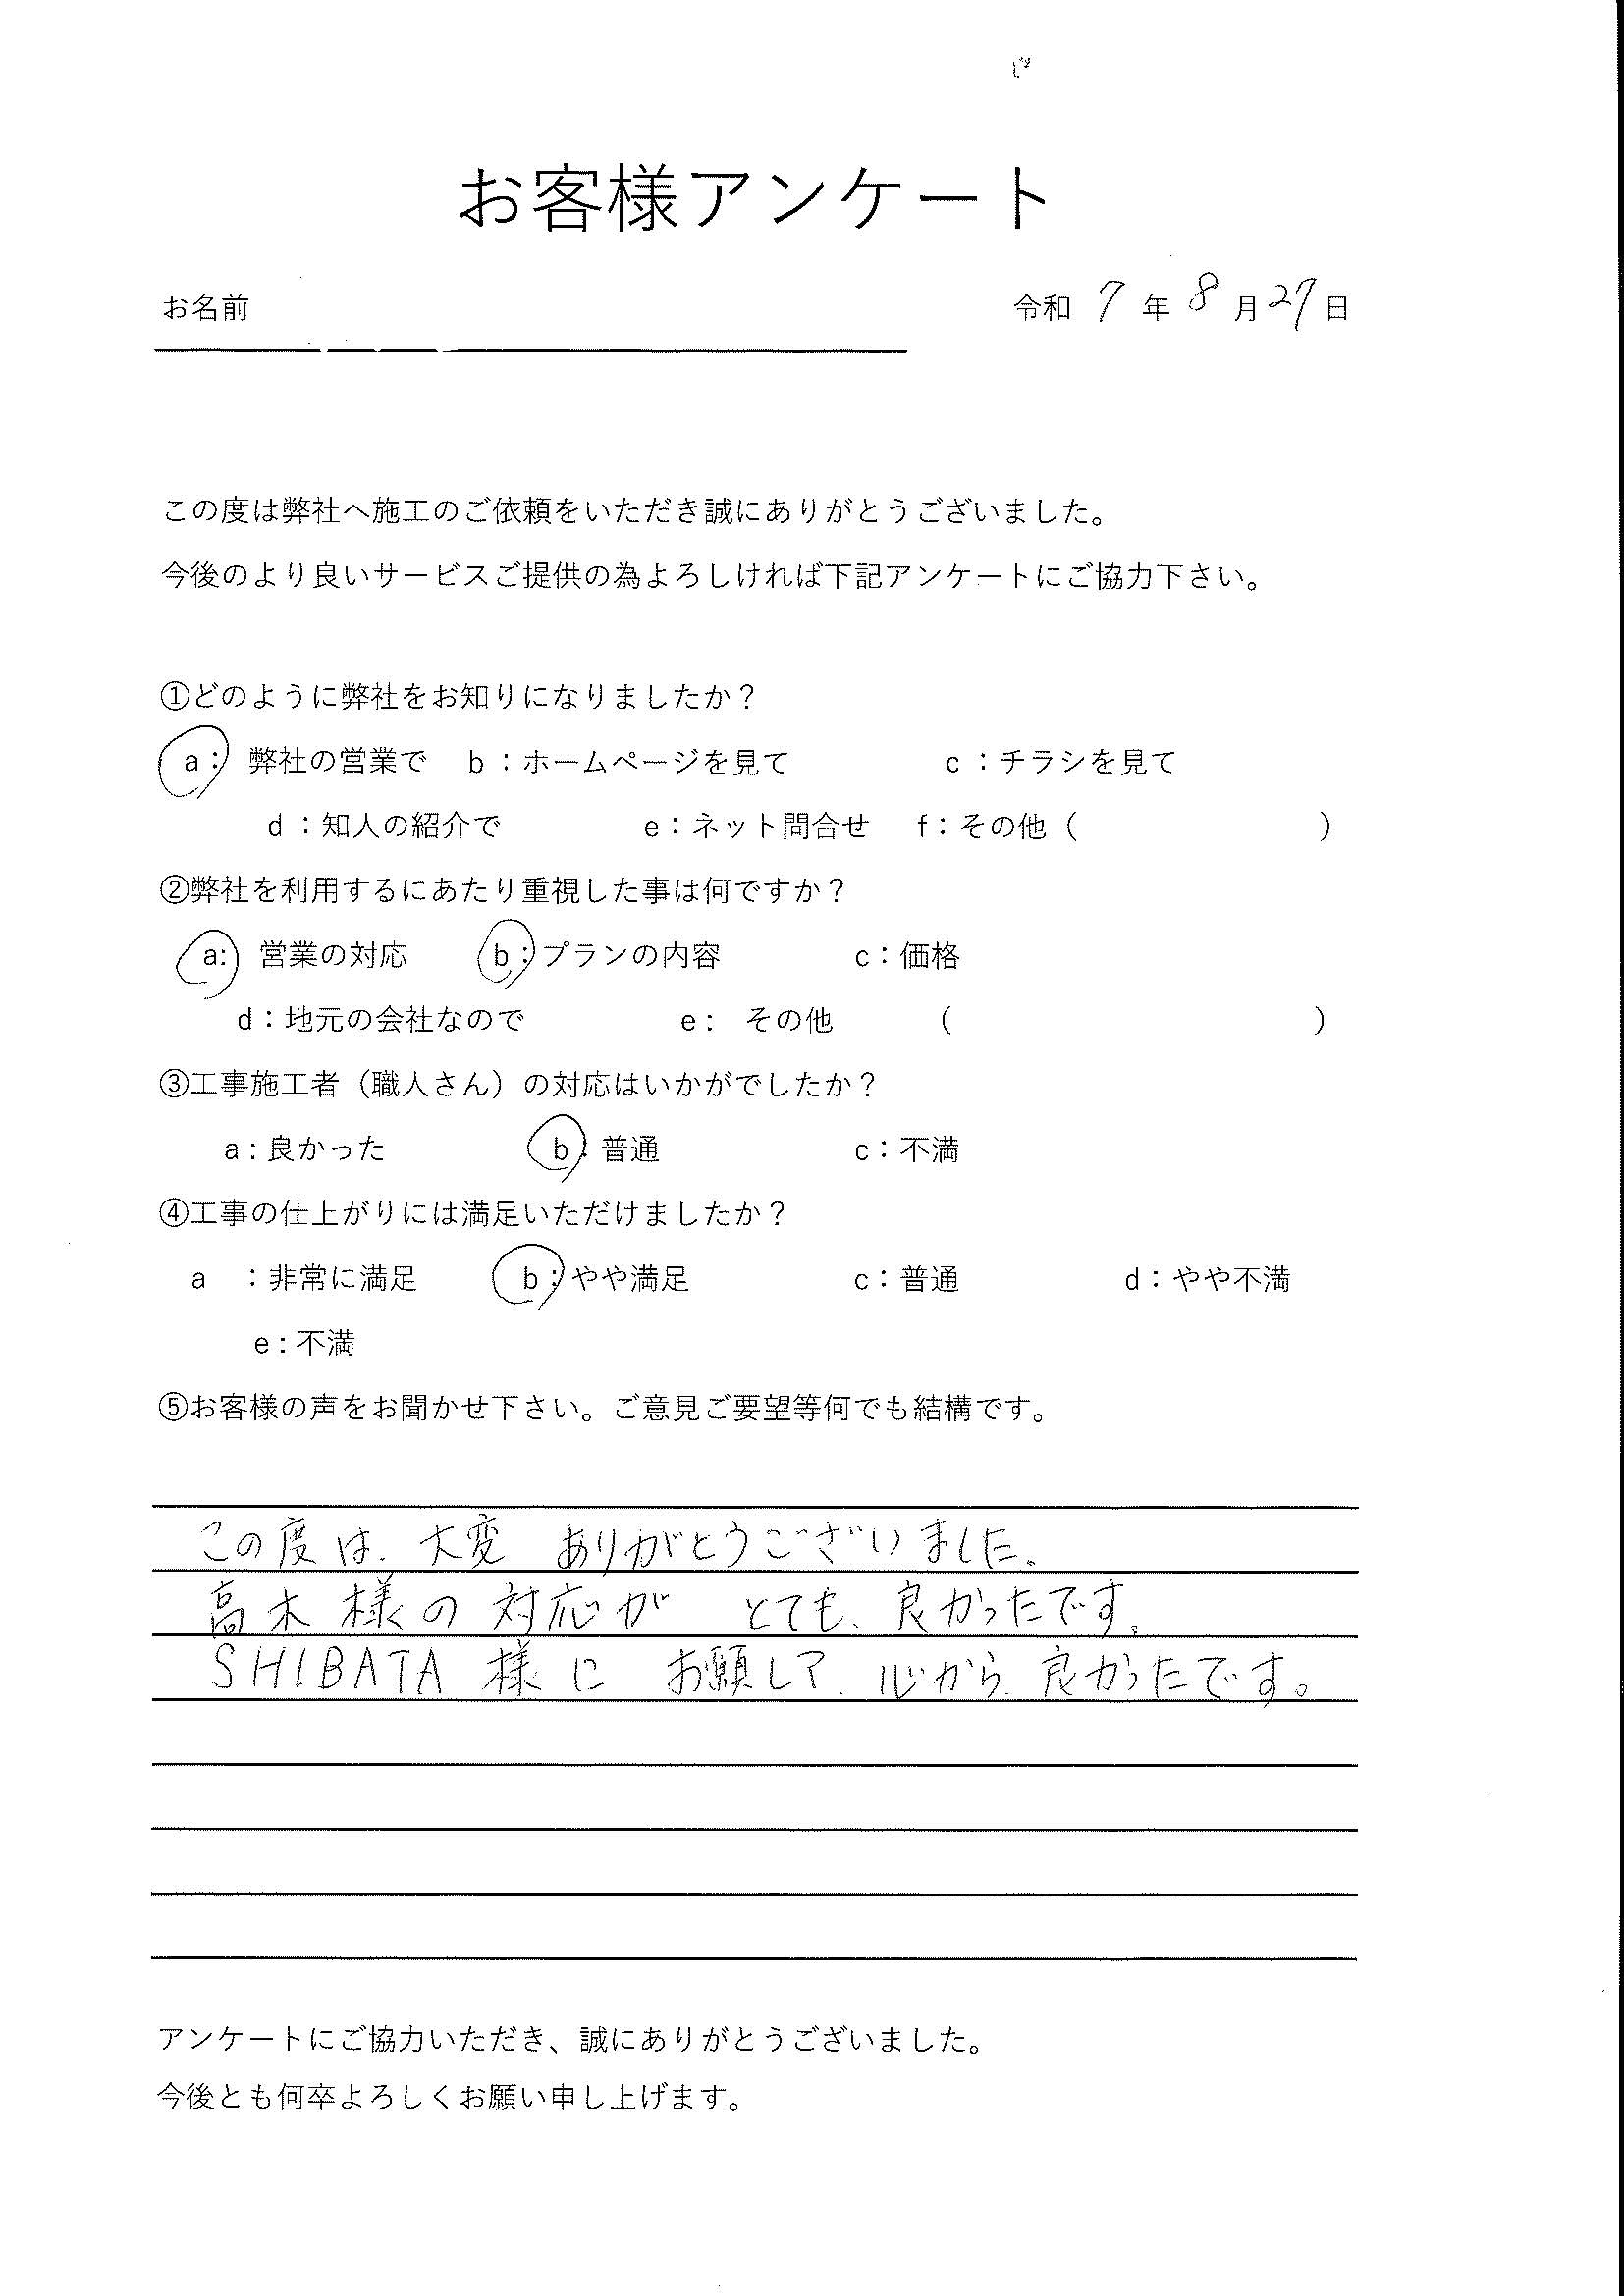 お客様アンケート
お名前 令和 7 年 8 月 27 日
この度は弊社へ施工のご依頼をいただき誠にありがとうございました。
今後のより良いサービスご提供の為よろしければ下記アンケートにご協力下さい。
①どのように弊社をお知りになりましたか？
a： 弊社の営業で b：ホームページを見て c：チラシを見て
d：知人の紹介で e：ネット問合せ f：その他（ ）
②弊社を利用するにあたり重視した事は何ですか？
a: 営業の対応 b：プランの内容 c：価格
d：地元の会社なので e: その他 （ ）
③工事施工者（職人さん）の対応はいかがでしたか？
a：良かった b：普通 c：不満
④工事の仕上がりには満足いただけましたか？
a ：非常に満足 b：やや満足 c：普通 d：やや不満
e：不満
⑤お客様の声をお聞かせ下さい。ご意見ご要望等何でも結構です。
この度は、大変 ありがとうございました。
高木様の対応が とても、良かったです。
SHIBATA様に お願して、心から、良かったです。
アンケートにご協力いただき、誠にありがとうございました。
今後とも何卒よろしくお願い申し上げます。